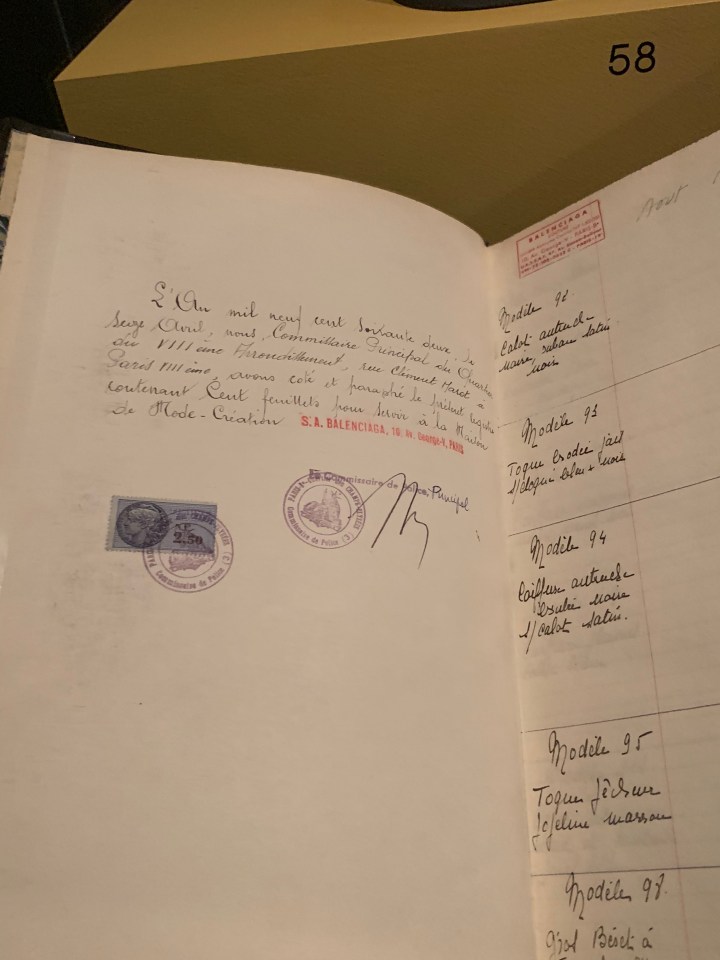 58
L'An mil neuf cent soixante deux, le
Seize Avril, nous, Commissaire Principal du Quartier
du VIIIème Arrondissement, rue Clément Marot à
Paris VIIIème, avons coté et paraphé le présent registre
contenant Cent feuillets pour servir à la Maison
de Mode-Création S.A. BALENCIAGA, 10, Av. George-V, PARIS
Le Commissaire de Police, Principal
2,50
Commissaire de Police
Commissaire de Police
Août
BALENCIAGA
Modèle
Calot autruche
noire, ruban satin
noir
Modèle 93
Toque brodée jais
s/cloqué bleu + noir
Modèle 94
Coiffure autruche
noire
s/calot satin.
Modèle 95
Toque
marron
Modèle